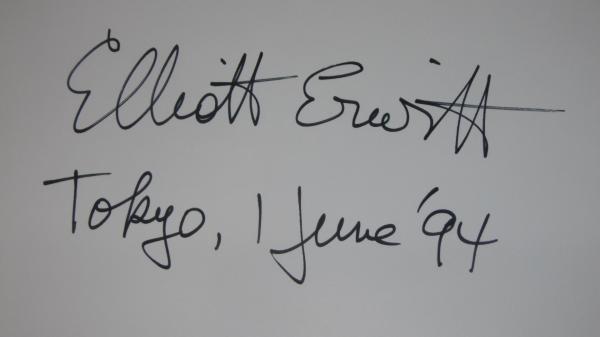 Elliott Erwitt
Tokyo, 1 June '94